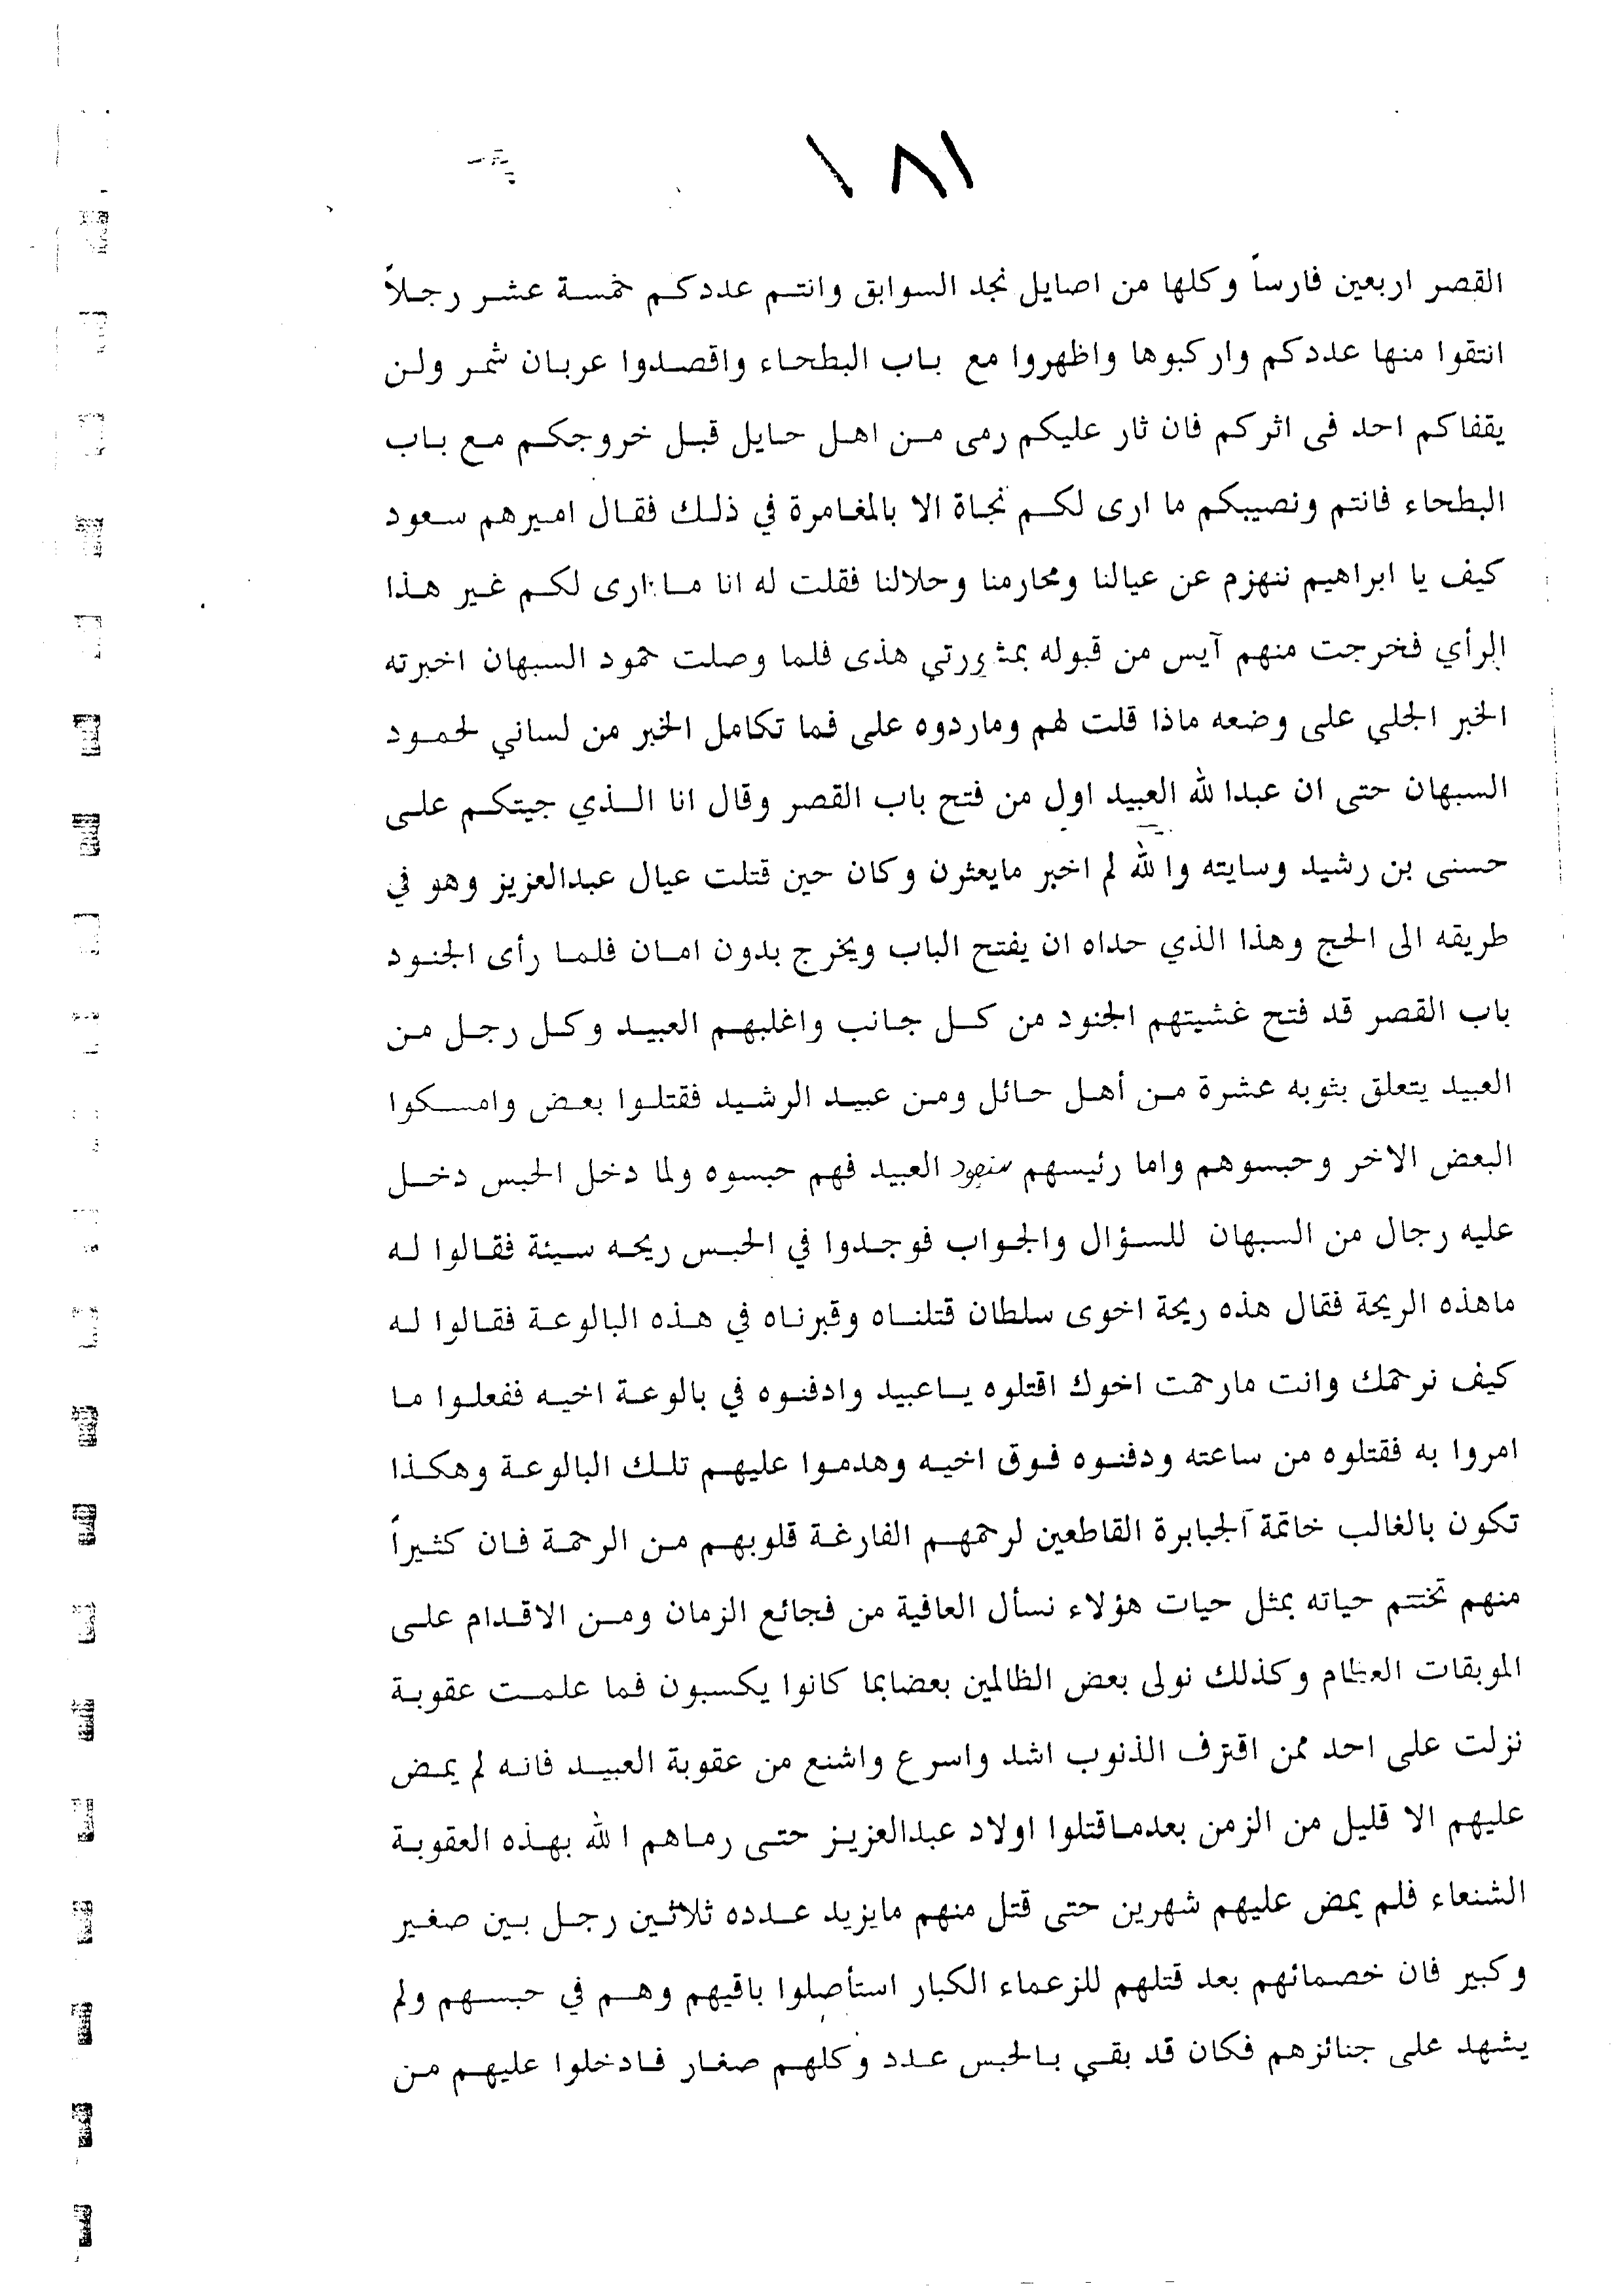 ١٨١
القصر اربعين فارساً وكلها من اصايل نجد السوابق وانتم عددكم خمسة عشر رجلاً
انتقوا منها عددكم واركبوها واظهروا مع باب البطحاء واقصدوا عربان شمر ولن
يقفاكم احد فى اثركم فان ثار عليكم رمى من اهل حايل قبل خروجكم مع باب
البطحاء فانتم ونصيبكم ما ارى لكم نجاة الا بالمغامرة في ذلك فقال اميرهم سعود
كيف يا ابراهيم ننهزم عن عيالنا ومحارمنا وحلالنا فقلت له انا ما ارى لكم غير هذا
الرأي فخرجت منهم آيس من قبوله بمشورتي هذى فلما وصلت حمود السبهان اخبرته
الخبر الجلي على وضعه ماذا قلت لهم وماردوه على فما تكامل الخبر من لساني لحمود
السبهان حتى ان عبدالله العبيد اول من فتح باب القصر وقال انا الذي جيتكم على
حسنى بن رشيد وسايته والله لم اخبر مايعثرن وكان حين قتلت عيال عبدالعزيز وهو في
طريقه الى الحج وهذا الذي حداه ان يفتح الباب ويخرج بدون امان فلما رأى الجنود
باب القصر قد فتح غشيتهم الجنود من كل جانب واغلبهم العبيد وكل رجل من
العبيد يتعلق بثوبه عشرة من أهل حائل ومن عبيد الرشيد فقتلوا بعض وامسكوا
البعض الاخر وحبسوهم واما رئيسهم العبيد فهم حبسوه ولما دخل الحبس دخل
عليه رجال من السبهان للسؤال والجواب فوجدوا في الحبس ريحه سيئة فقالوا له
ماهذه الريحة فقال هذه ريحة اخوى سلطان قتلناه وقبرناه في هذه البالوعة فقالوا له
كيف نرحمك وانت مارحمت اخوك اقتلوه ياعبيد وادفنوه في بالوعة اخيه ففعلوا ما
امروا به فقتلوه من ساعته ودفنوه فوق اخيه وهدموا عليهم تلك البالوعة وهكذا
تكون بالغالب خاتمة الجبابرة القاطعين لرحمهم الفارغة قلوبهم من الرحمة فان كثيراً
منهم تختتم حياته بمثل حيات هؤلاء نسأل العافية من فجائع الزمان ومن الاقدام على
الموبقات العظام وكذلك نولى بعض الظالمين بعضابما كانوا يكسبون فما علمت عقوبة
نزلت على احد ممن اقترف الذنوب اشد واسرع واشنع من عقوبة العبيد فانه لم يمض
عليهم الا قليل من الزمن بعدماقتلوا اولاد عبدالعزيز حتى رماهم الله بهذه العقوبة
الشنعاء فلم يمض عليهم شهرين حتى قتل منهم مايزيد عدده ثلاثين رجل بين صغير
وكبير فان خصمائهم بعد قتلهم للزعماء الكبار استأصلوا باقيهم وهم في حبسهم ولم
يشهد على جنائزهم فكان قد بقي بالحبس عدد وكلهم صغار فادخلوا عليهم من